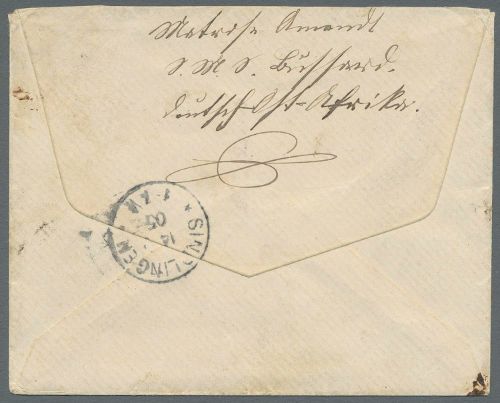 Matrose Amendt
S. M. S. Bussard.
Deutsch-Ost-Afrika.
SINDLINGEN
14
05